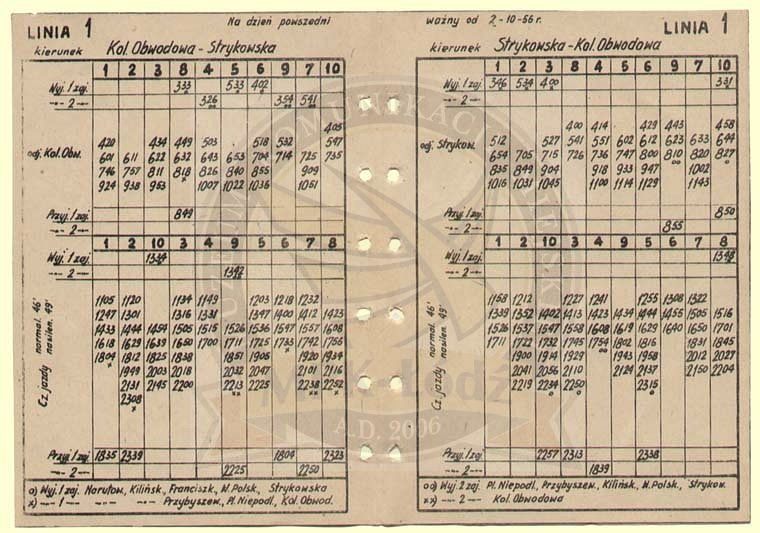 LINIA 1 Na dzień powszedni
kierunek Kol. Obwodowa - Strykowska
1 2 3 8 4 5 6 9 7 10
Wyj. 1 zaj. 333 533 402
-„- 2 -„- 326 354 541
405
420 434 449 503 518 532 547
odj. Kol. Obw. 601 611 622 632 643 653 704 714 725 735
746 757 811 818 826 840 855 909
924 938 953 1007 1022 1036 1051
Przyj. 1 zaj. 849
-„- 2 -„-
1 2 10 3 4 9 5 6 7 8
Wyj. 1 zaj. 1344
-„- 2 -„- 1342
Cz. jazdy normal. 46' nasilen. 49'
1105 1120 1134 1149 1203 1218 1232
1247 1301 1316 1331 1347 1400 1412 1423
1433 1444 1454 1505 1515 1526 1536 1547 1557 1608
1618 1629 1639 1650 1700 1711 1725 1733 1742 1756
1804 1812 1825 1838 1851 1906 1920 1934
1949 2003 2018 2032 2047 2101 2116
2131 2145 2200 2213 2225 2238 2252
2308
Przyj. 1 zaj. 1835 2339 1804 2323
-„- 2 -„- 2225 2250
o) Wyj. 1 zaj. Narutow., Kilińsk., Franciszk., W. Polsk., Strykowska
xx) -„- 1 -„- -„- Przybyszew., Pl. Niepodl., Kol. Obwod.
ważny od 2-10-56 r. LINIA 1
kierunek Strykowska - Kol. Obwodowa
1 2 3 8 4 5 6 9 7 10
Wyj. 1 zaj. 346 534 400 331
-„- 2 -„-
400 414 429 443 458
odj. Strykow. 512 527 541 551 602 612 623 633 644
654 705 715 726 736 747 800 810 820 827
835 849 904 918 933 947 1002
1016 1031 1045 1100 1114 1129 1143
Przyj. 1 zaj. 850
-„- 2 -„- 855
1 2 10 3 4 9 5 6 7 8
Wyj. 1 zaj. 1348
-„- 2 -„-
Cz. jazdy normal. 46' nasilen. 49'
1158 1212 1227 1241 1255 1308 1322
1339 1352 1402 1413 1423 1434 1444 1455 1505 1516
1526 1537 1547 1558 1608 1619 1629 1640 1650 1701
1711 1722 1732 1745 1754 1802 1816 1831 1845
1900 1914 1929 1943 1958 2012 2027
2041 2056 2110 2124 2137 2150 2204
2219 2234 2250 2315
Przyj. 1 zaj. 2257 2313 2338
-„- 2 -„- 1839
oo) Wyj. 2 zaj. Pl. Niepodl., Przybyszew., Kilińsk., W. Polsk., Strykow.
xx) -„- 2 -„- Kol. Obwodowa
A.D. 2006